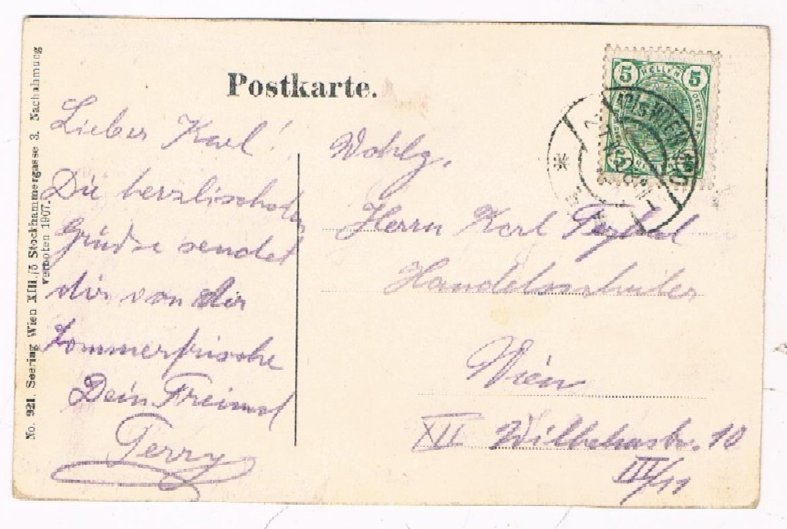 Postkarte.
Lieber Karl!
Die herzlischsten
Grüdse sendet
dir von der
Sommerfrische
Dein Freund
Ferry
Wohlg.
Herrn Karl
Handelsschüler
Wien
XII 10
III/11
No. 921. Seering Wien XIII./5 Stockhammergasse 3. Nachahmung
verboten 1907.
5 HELLER 5